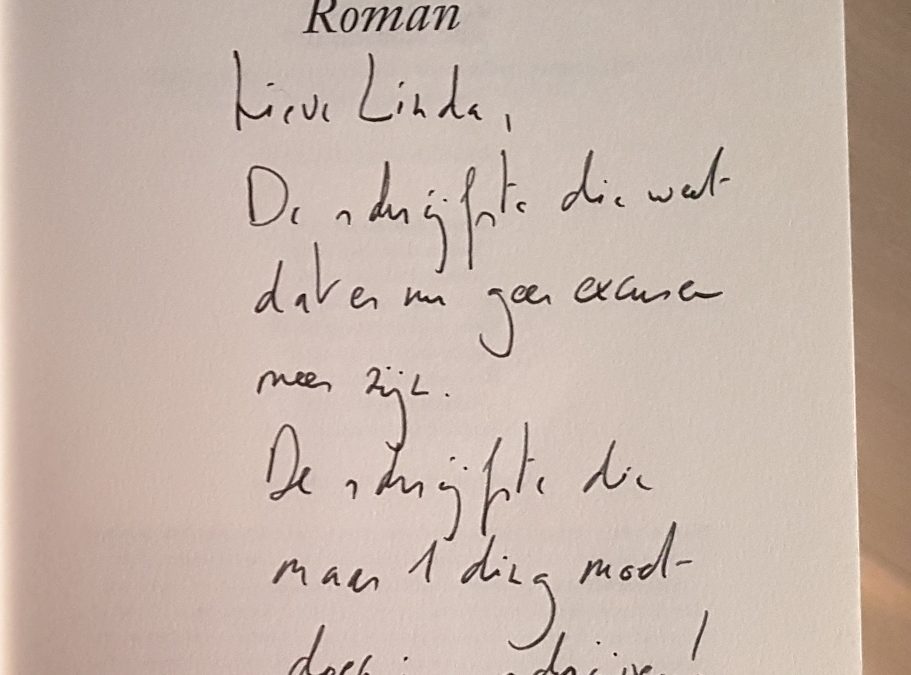 Roman
Lieve Linda,
De schrijfster die weet
dat er nu geen excuses
meer zijn.
De schrijfster die
maar 1 ding moet
doen: schrijven!